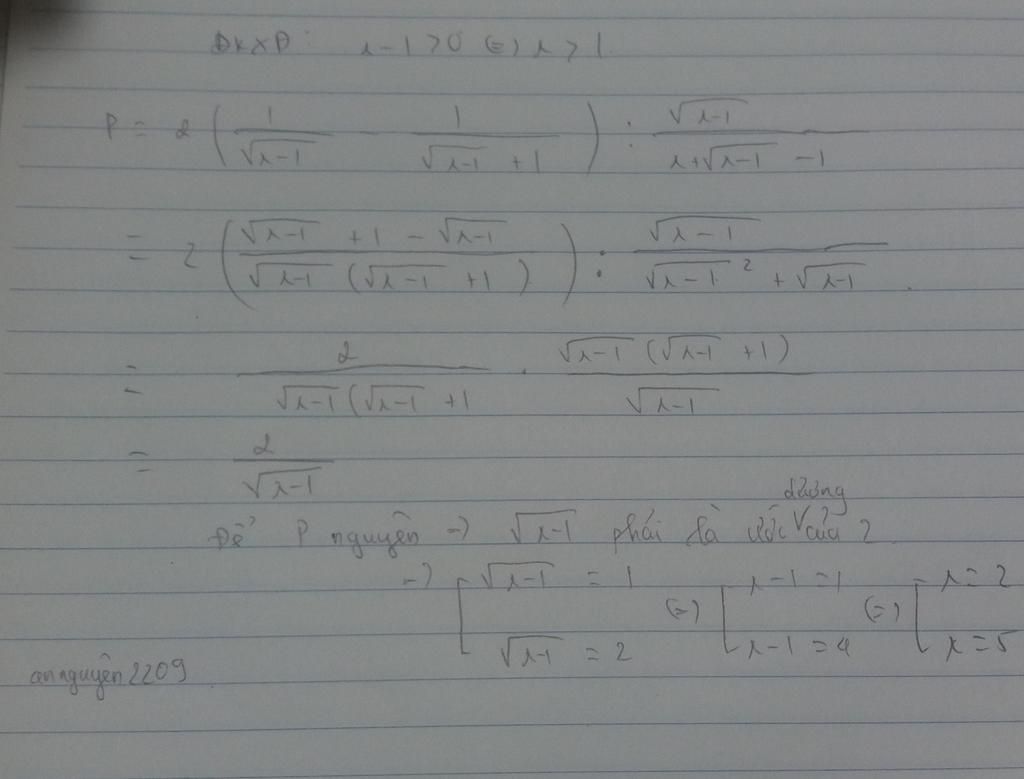 ĐKXĐ: x-1 > 0 (=) x > 1.
P = 2 ( 1/√(x-1) - 1/(√(x-1) + 1) ) : √(x-1)/(x+√(x-1) -1)
= 2 ( (√(x-1) + 1 - √(x-1))/(√(x-1) (√(x-1) + 1)) ) : √(x-1)/(√(x-1)² + √(x-1)).
= 2/(√(x-1) (√(x-1) + 1 . √(x-1) (√(x-1) + 1)/√(x-1)
= 2/√(x-1)
Để P nguyên -> √(x-1) phải là ước dương của 2
-> [ √(x-1) = 1 (=) [ x-1 = 1 (=) [ x = 2
√(x-1) = 2 x-1 = 4 x = 5
annguyên2209